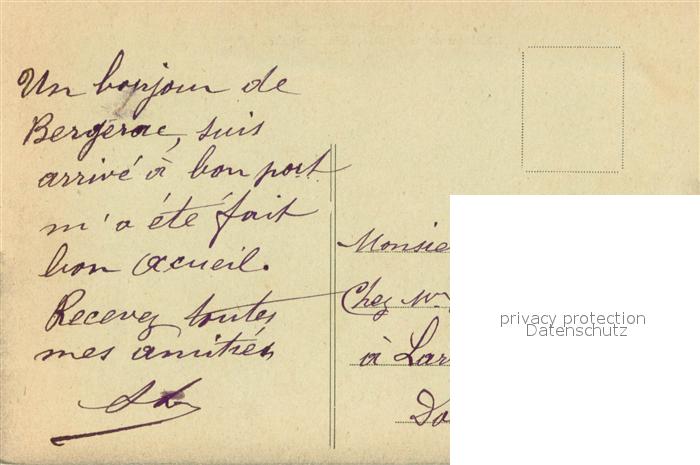 Un bonjour de
Bergerac, suis
arrivé à bon port
m'a été fait
bon accueil.
Recevez toutes
mes amitiés
Monsie
Chez Mr
à Lar
Do
privacy protection
Datenschutz